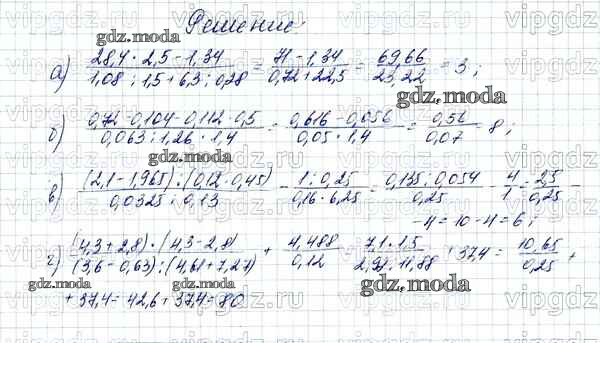 Решение:
а) (28,4 · 2,5 − 1,34)/(1,08 : 1,5 + 6,3 : 0,28) = (71 − 1,34)/(0,72 + 22,5) = 69,66/23,22 = 3;
б) (0,72 − 0,104 − 0,112 · 0,5)/(0,063 : 1,26 · 1,4) = (0,616 − 0,056)/(0,05 · 1,4) = 0,56/0,07 8;
в) ((2,1 − 1,965) : (0,12 · 0,45))/(0,0325 : 0,13) − (1 : 0,25)/(0,16 · 6,25) = (0,135 : 0,054)/0,25 − 4/1 = 2,5/0,25 −
− 4 = 10 − 4 = 6;
г) ((4,3 + 2,8) · (4,3 − 2,8))/((3,6 − 0,63) : (4,61 + 7,27)) + 4,488/0,12 (7,1 · 1,5)/(2,97 : 11,88) + 37,4 = 10,65/0,25 +
+ 37,4 = 42,6 + 37,4 = 80
gdz.moda
gdz.moda
gdz.moda
gdz.moda
gdz.moda
gdz.moda
gdz.moda
vipgdz